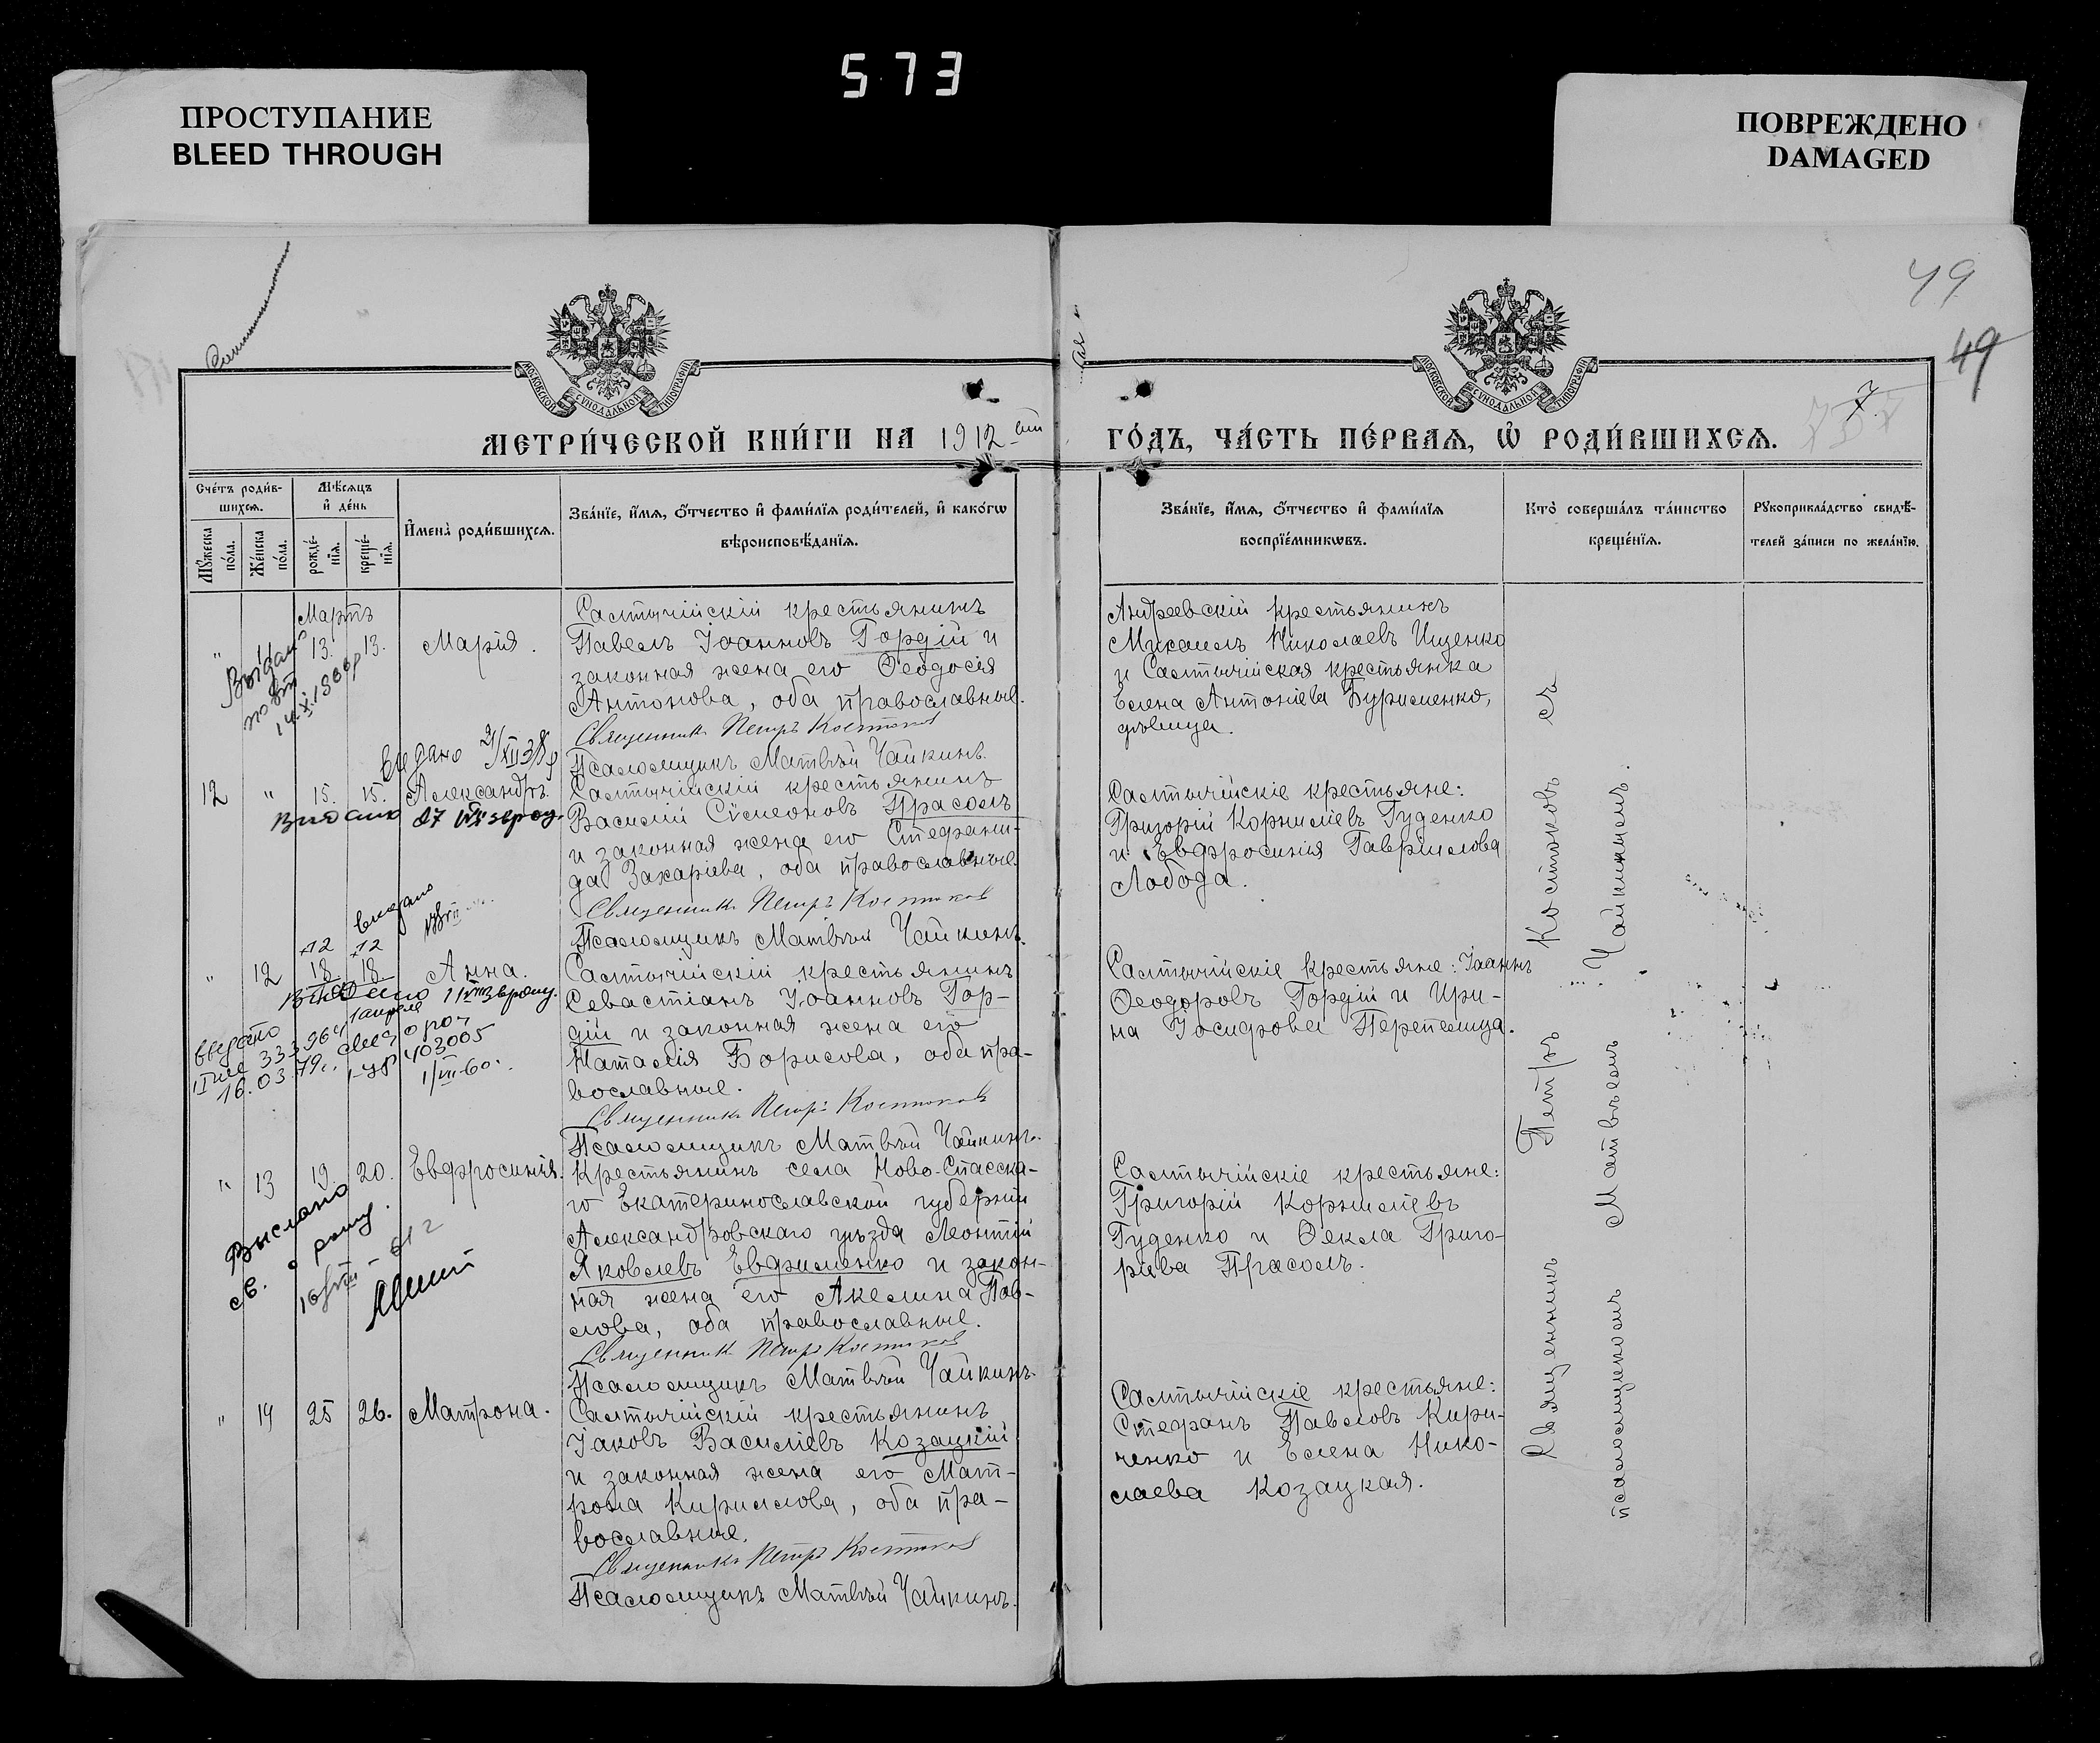 573
ПРОСТУПАНИЕ
BLEED THROUGH
ПОВРЕЖДЕНО
DAMAGED
49
49
7
МОСКОВСКОЙ СѴНОДАЛЬНОЙ ТИПОГРАФІИ
МОСКОВСКОЙ СѴНОДАЛЬНОЙ ТИПОГРАФІИ
МЕТРИ́ЧЕСКОЙ КНИ́ГИ НА 1912 ГО́ДЪ, ЧА́СТЬ ПЕ́РВАѦ, Ѽ РОДИ́ВШИХСѦ.
Сче́тъ роди́в-
шихсѧ.
Мꙋ́жеска
по́ла.
Же́нска
по́ла.
Мѣ́сѧцъ
и҆ де́нь
рожде́-
нїѧ.
креще́-
нїѧ.
И҆мена̀ роди́вшихсѧ.
Зва́нїе, и҆́мѧ, ѻ҆́тчество и҆ фами́лїѧ роди́телей, и҆ како́гѡ
вѣроисповѣ́данїѧ.
Зва́нїе, и҆́мѧ, ѻ҆́тчество и҆ фами́лїѧ
воспрїе́мникѡвъ.
Кто̀ соверша́лъ та́инство
креще́нїѧ.
Рꙋкоприкла́дство свидѣ́-
телей за́писи по жела́нїю.
Мартъ
" 13. 13. Марія.
Салтычійскій крестьянинъ
Павелъ Іоанновъ Гордій и
законная жена его Ѳеодосія
Антонова, оба православные.
Священникъ Петръ Костюков
Псаломщикъ Матвѣй Чайкинъ.
Андреевскій крестьянинъ
Михаилъ Николаевъ Ищенко
и Салтычійская крестьянка
Елена Антоніева Бурименко,
дѣвица.
Выдано
12 " 15. 15. Александръ.
Салтычійскій крестьянинъ
Василій Сѵмеоновъ Прасолъ
и законная жена его Стефани-
да Захаріева, оба православные.
Священникъ Петръ Костюков
Псаломщикъ Матвѣй Чайкинъ.
Салтычійскіе крестьяне:
Григорій Корниліевъ Гуденко
и Евфросинія Гавріилова
Лобода.
12 12
" 12 18 18 Анна.
Салтычійскій крестьянинъ
Севастіанъ Іоанновъ Гор-
дій и законная жена его
Наталія Борисова, оба пра-
вославные.
Священникъ Петръ Костюковъ
Псаломщикъ Матвѣй Чайкинъ.
Салтычійскіе крестьяне: Іоаннъ
Ѳеодоровъ Гордій и Ири-
на Іосифова Перепелица.
16.03.79г.
403005
" 13 19. 20. Евфросинія.
Крестьянинъ села Ново-Спасска-
го Екатеринославской губерніи
Александровскаго уѣзда Леонтій
Яковлевъ Евфименко и закон-
ная жена его Акелина Пав-
лова, оба православные.
Священникъ Петръ Костюков
Псаломщикъ Матвѣй Чайкинъ.
Салтычійскіе крестьяне:
Григорій Корниліевъ
Гуденко и Ѳекла Григо-
ріева Прасолъ.
Выслано
св. о рожд.
" 14 25 26. Матрона.
Салтычійскій крестьянинъ
Іаковъ Василіевъ Козацкій
и законная жена его Мат-
рона Кириллова, оба пра-
вославные.
Священникъ Петръ Костюков
Псаломщикъ Матвѣй Чайкинъ.
Салтычійскіе крестьяне:
Стефанъ Павловъ Кири-
ченко и Елена Нико-
лаева Козацкая.
Священникъ Петръ Костюковъ съ
псаломщикомъ Матвѣемъ Чайкинымъ.